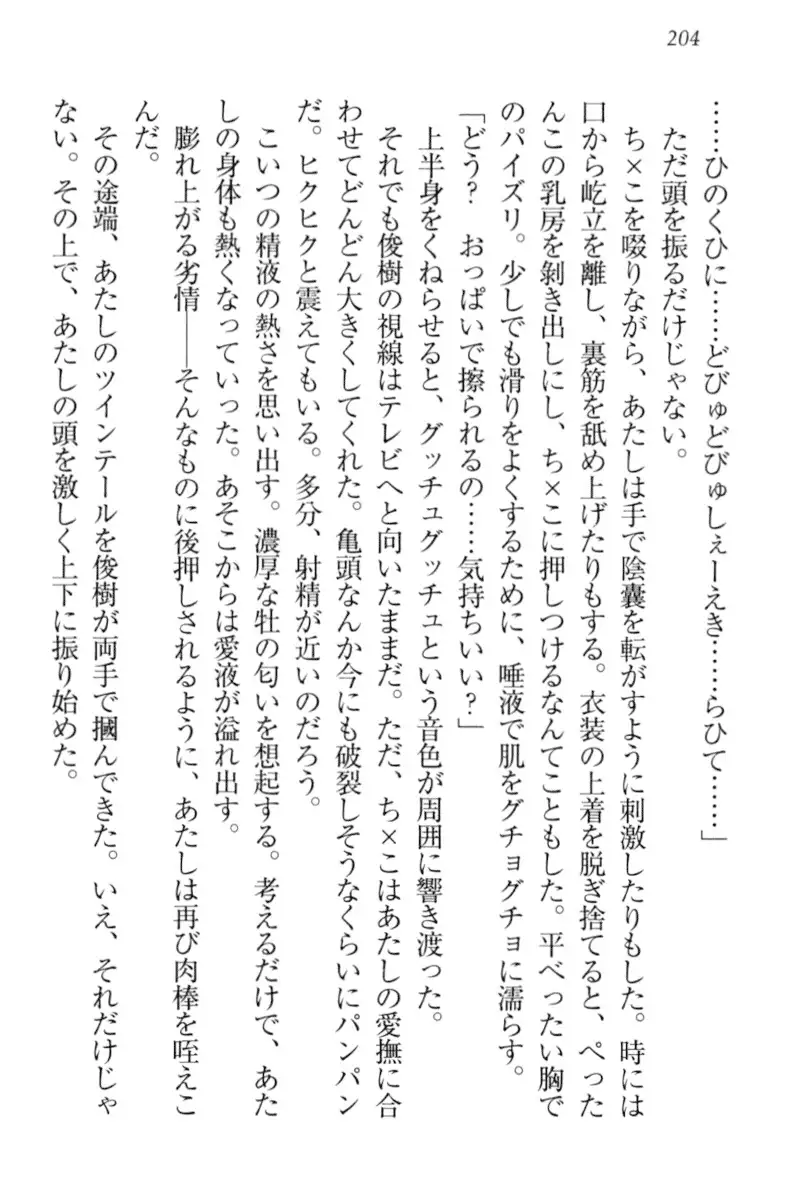 204
……ひのくひに……どびゅどびゅしぇーえき……らひて……」
ただ頭を振るだけじゃない。
ち×こを啜りながら、あたしは手で陰嚢を転がすように刺激したりもした。時には
口から屹立を離し、裏筋を舐め上げたりもする。衣装の上着を脱ぎ捨てると、ぺった
んこの乳房を剝き出しにし、ち×こに押しつけるなんてこともした。平べったい胸で
のパイズリ。少しでも滑りをよくするために、唾液で肌をグチョグチョに濡らす。
「どう？　おっぱいで擦られるの……気持ちいい？」
上半身をくねらせると、グッチュグッチュという音色が周囲に響き渡った。
それでも俊樹の視線はテレビへと向いたままだ。ただ、ち×こはあたしの愛撫に合
わせてどんどん大きくしてくれた。亀頭なんか今にも破裂しそうなくらいにパンパン
だ。ヒクヒクと震えてもいる。多分、射精が近いのだろう。
こいつの精液の熱さを思い出す。濃厚な牡の匂いを想起する。考えるだけで、あた
しの身体も熱くなっていった。あそこからは愛液が溢れ出す。
膨れ上がる劣情――そんなものに後押しされるように、あたしは再び肉棒を咥えこ
んだ。
その途端、あたしのツインテールを俊樹が両手で摑んできた。いえ、それだけじゃ
ない。その上で、あたしの頭を激しく上下に振り始めた。